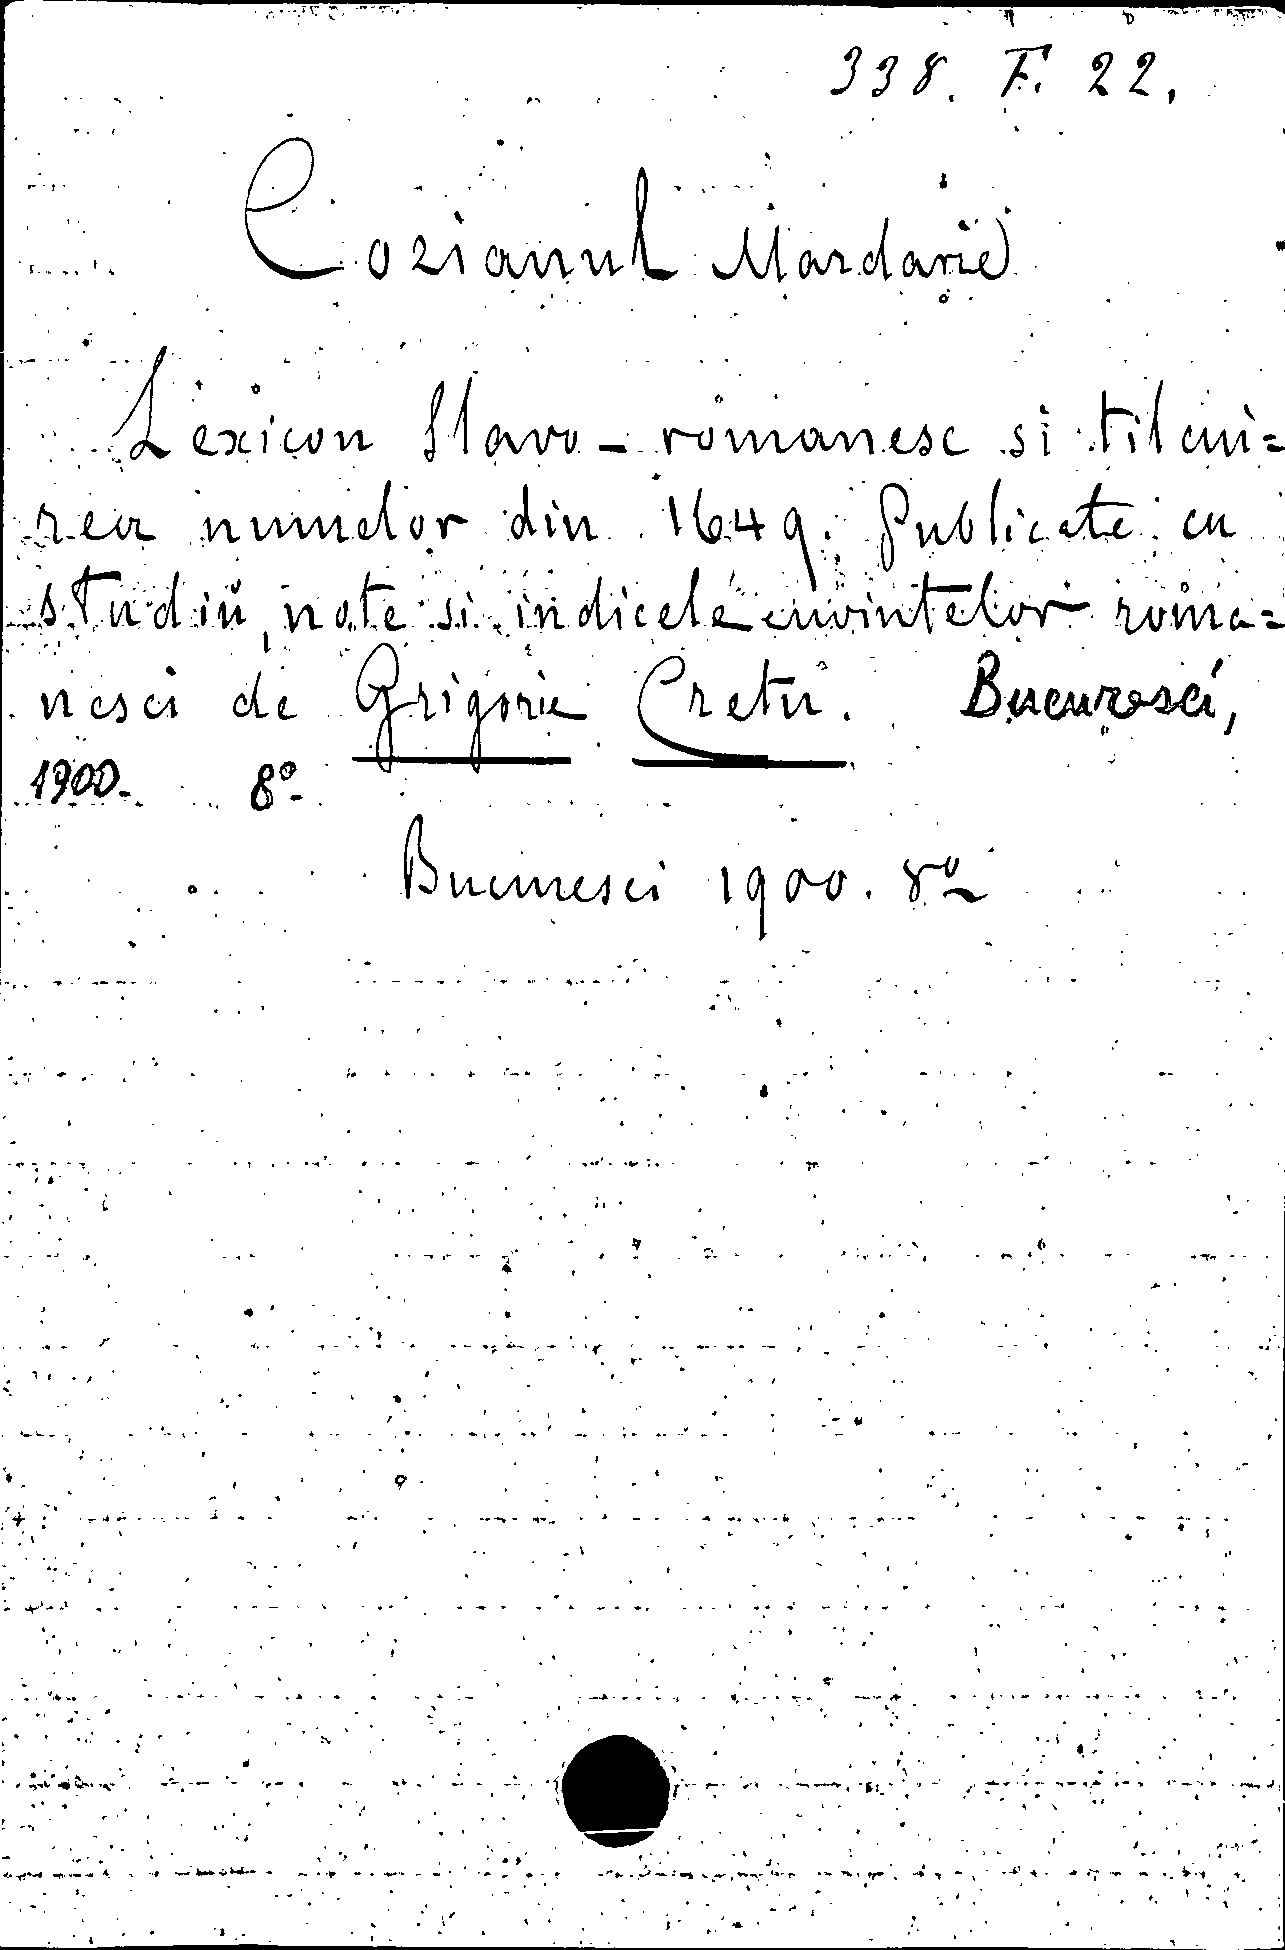 338. F. 22.
Cozianul Mardarie
Lexicon Slavo-romanesc si tilcui=
rea numelor din 1649. Publicate cu
studiŭ, note si indicele cuvintelor roma=
nesci de Grigorie Cretu. Bucuresci,
1900. 8º.
Bucuresci 1900. 8º